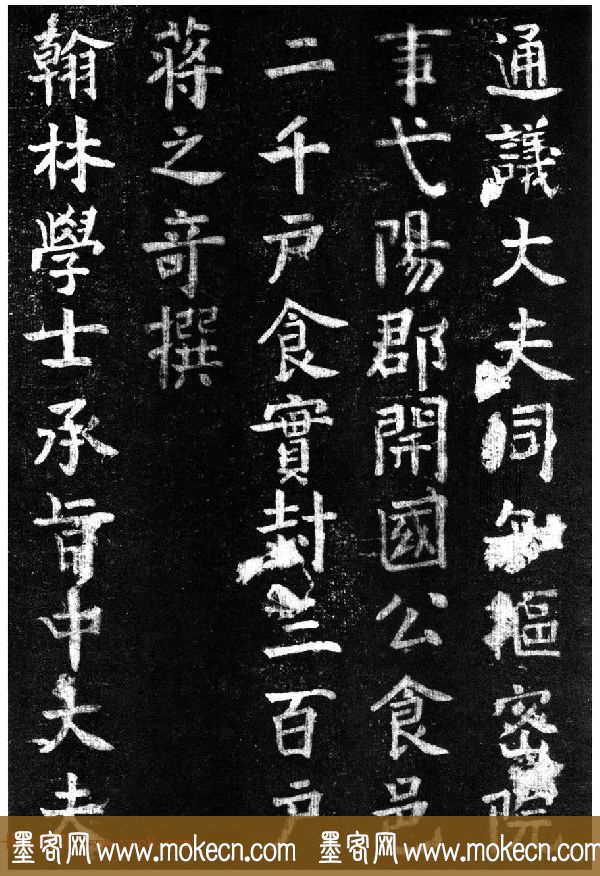 通議大夫同知樞密院
事弋陽郡開國公食邑
二千户食實封三百户
蔣之奇撰
翰林學士承旨中大夫
墨客网 www.mokecn.com 墨客网 www.mokecn.com